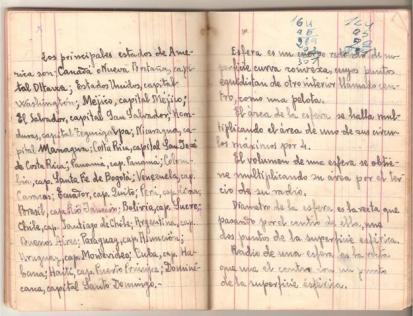 Los principales estados de Ame-
rica son: Canadá o Nueva Bretaña, capi-
tal Ottawa; Estados Unidos, capital
Washington; Méjico, capital Méjico;
El Salvador, capital San Salvador; Hon-
duras, capital Tegucigalpa; Nicaragua, ca-
pital Managua; Costa Rica, capital San José
de Costa Rica; Panamá, cap. Panamá; Colom-
bia, cap. Santa Fe de Bogotá; Venezuela, cap.
Caracas; Ecuador, cap. Quito; Perú, cap. Lima;
Brasil, cap. Rio Janeiro; Bolivia, cap. Sucre;
Chile, cap. Santiago de Chile; Argentina, cap.
Buenos Aires; Paraguay, cap. Asunción;
Uruguay, cap. Montevideo; Cuba, cap. Ha-
bana; Haití, cap. Puerto Príncipe; Domini-
cana, capital Santo Domingo.-
164
Esfera es un cuerpo de su-
perficie curva convexa, cuyos puntos
equidistan de otro interior llamado cen-
tro, como una pelota.
El área de la esfera se halla mul-
tiplicando el área de uno de sus círcu-
los máximos por 4.
El volumen de una esfera se obtie-
ne multiplicando su área por el ter-
cio de su radio.
Diámetro de la esfera es la recta que
pasando por el centro de ella, une
dos puntos de la superficie esférica.
Radio de una esfera es la recta
que une el centro con un punto
de la superficie esférica.